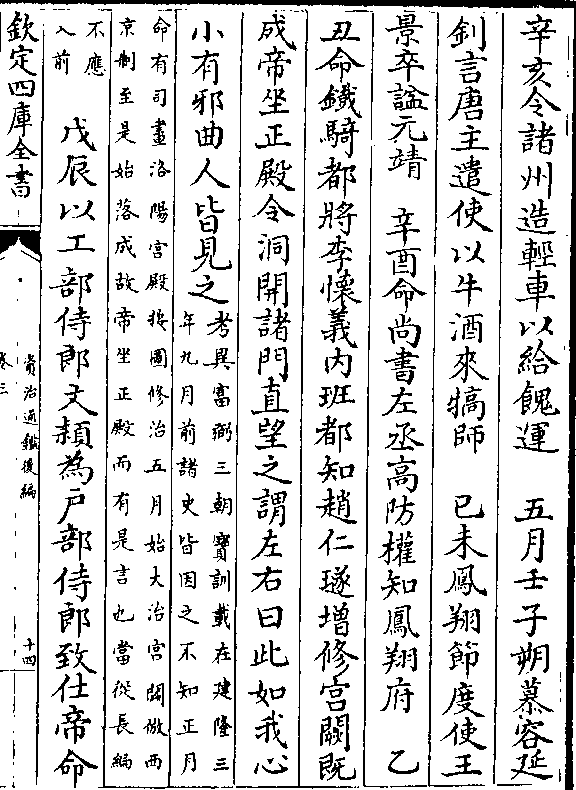 辛亥令諸州造輕車以給餽運　五月壬子朔慕容延
釗言唐主遣使以牛酒來犒師　已未鳳翔節度使王
景卒諡元靖　辛酉命尚書左丞高防權知鳳翔府　乙
丑命鐵騎都將李懷義內班都知趙仁璲增修宮闕既
成帝坐正殿令洞開諸門直望之謂左右曰此如我心
小有邪曲人皆見之考異富弼三朝寶訓載在建隆三
年九月前諸史皆因之不知正月
命有司畫洛陽宮殿按圖修治五月始大治宮闕倣西
京制至是始落成故帝坐正殿而有是言也當從長編
不應
入前　戊辰以工部侍郎艾頴為戶部侍郎致仕帝命
欽定四庫全書
資治通鑑後編
卷三
十四